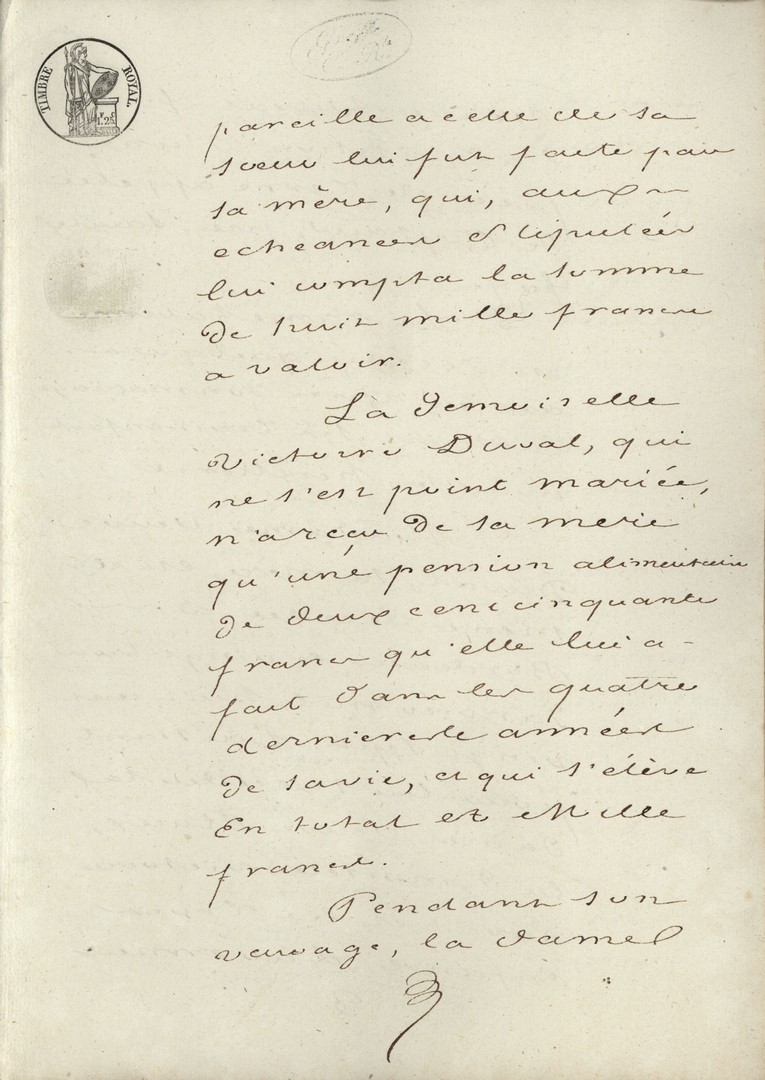 TIMBRE ROYAL.
1f.25c
pareille a celle de sa
sœur lui fut faite par
sa mère, qui, aux
echeances stipulées
lui compta la somme
de huit mille francs
a valoir.
La Demoiselle
Victoire Duval, qui
ne s'est point mariée,
n'a reçu de sa mere
qu'une pension alimentaire
de deux cent cinquante
francs qu'elle lui a
fait dans les quatre
dernieres années
de sa vie, et qui s'élève
En total et Mille
francs.
Pendant son
vauvage, la dame